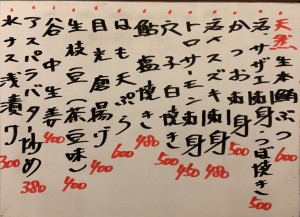 天然 生本鮪ぶつ 600
活サザエ(刺身・つぼ焼き) 500
かつお刺身 500
活〆スズキ刺身 480
トロサーモン刺身 450
穴子白焼き 500
鮎塩焼き 480
はも天ぷら 600
目光唐揚げ 400
生枝豆(茶豆味) 400
谷中生姜 400
アスパラバター炒め 380
水ナス浅漬け 300